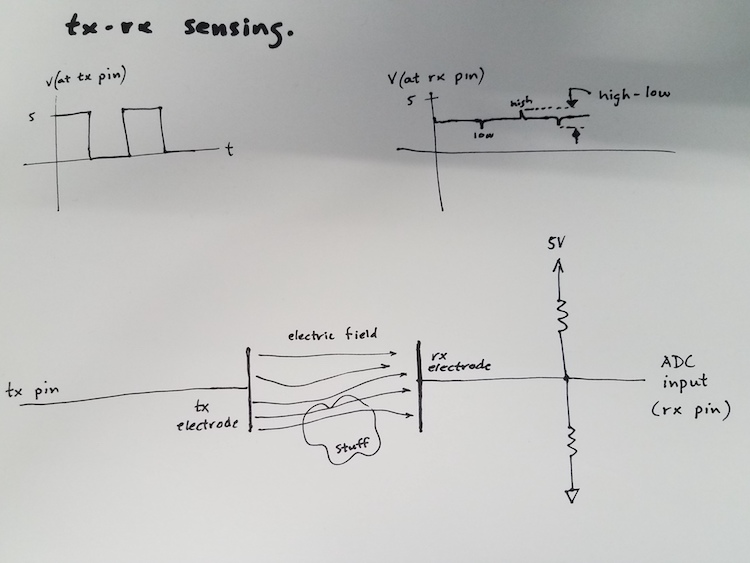 tx-rx sensing.
V(at tx pin)
5
t
V(at rx pin)
5
high
low
high-low
5V
electric field
tx pin
tx
electrode
stuff
rx
electrode
ADC
input
(rx pin)